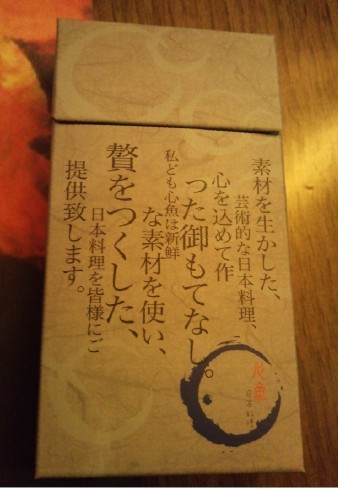 素材を生かした、
芸術的な日本料理、
心を込めて作
った御もてなし。
私ども心魚は新鮮
な素材を使い、
贅をつくした、
日本料理を皆様にご
提供致します。
心魚
日本料理